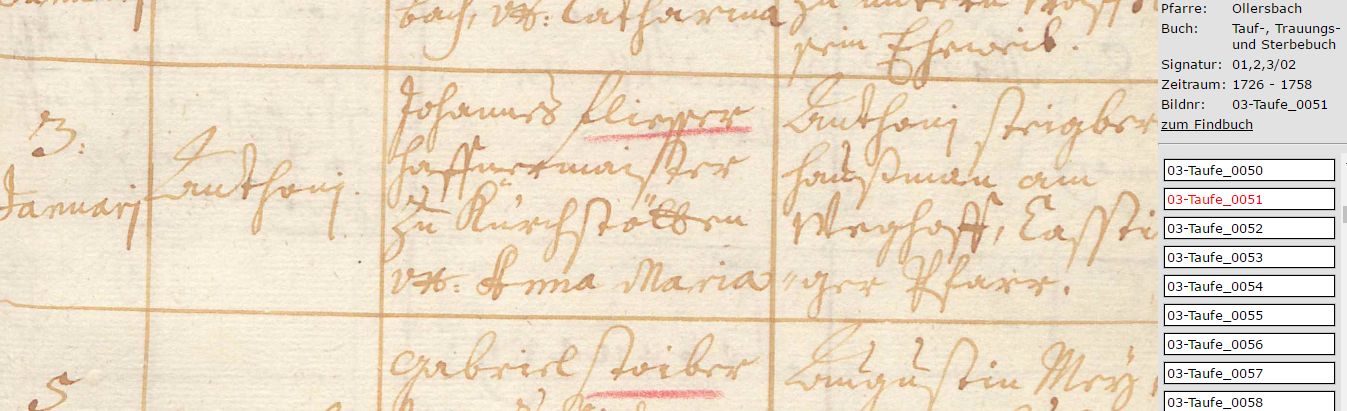 bach, ux: Catharina
sein Eheweib.
3.
Januarj
Anthonj.
Johannes fliesser
haffnermaister
zu Kürchstötten
ux: Anna Maria
Anthonj steigber
haußman am
Weghoff, Cassti
"ger Pfarr.
5
Gabriel stoiber
Augustin Mey
Pfarre: Ollersbach
Buch: Tauf-, Trauungs-
und Sterbebuch
Signatur: 01,2,3/02
Zeitraum: 1726 - 1758
Bildnr: 03-Taufe_0051
zum Findbuch
03-Taufe_0050
03-Taufe_0051
03-Taufe_0052
03-Taufe_0053
03-Taufe_0054
03-Taufe_0055
03-Taufe_0056
03-Taufe_0057
03-Taufe_0058